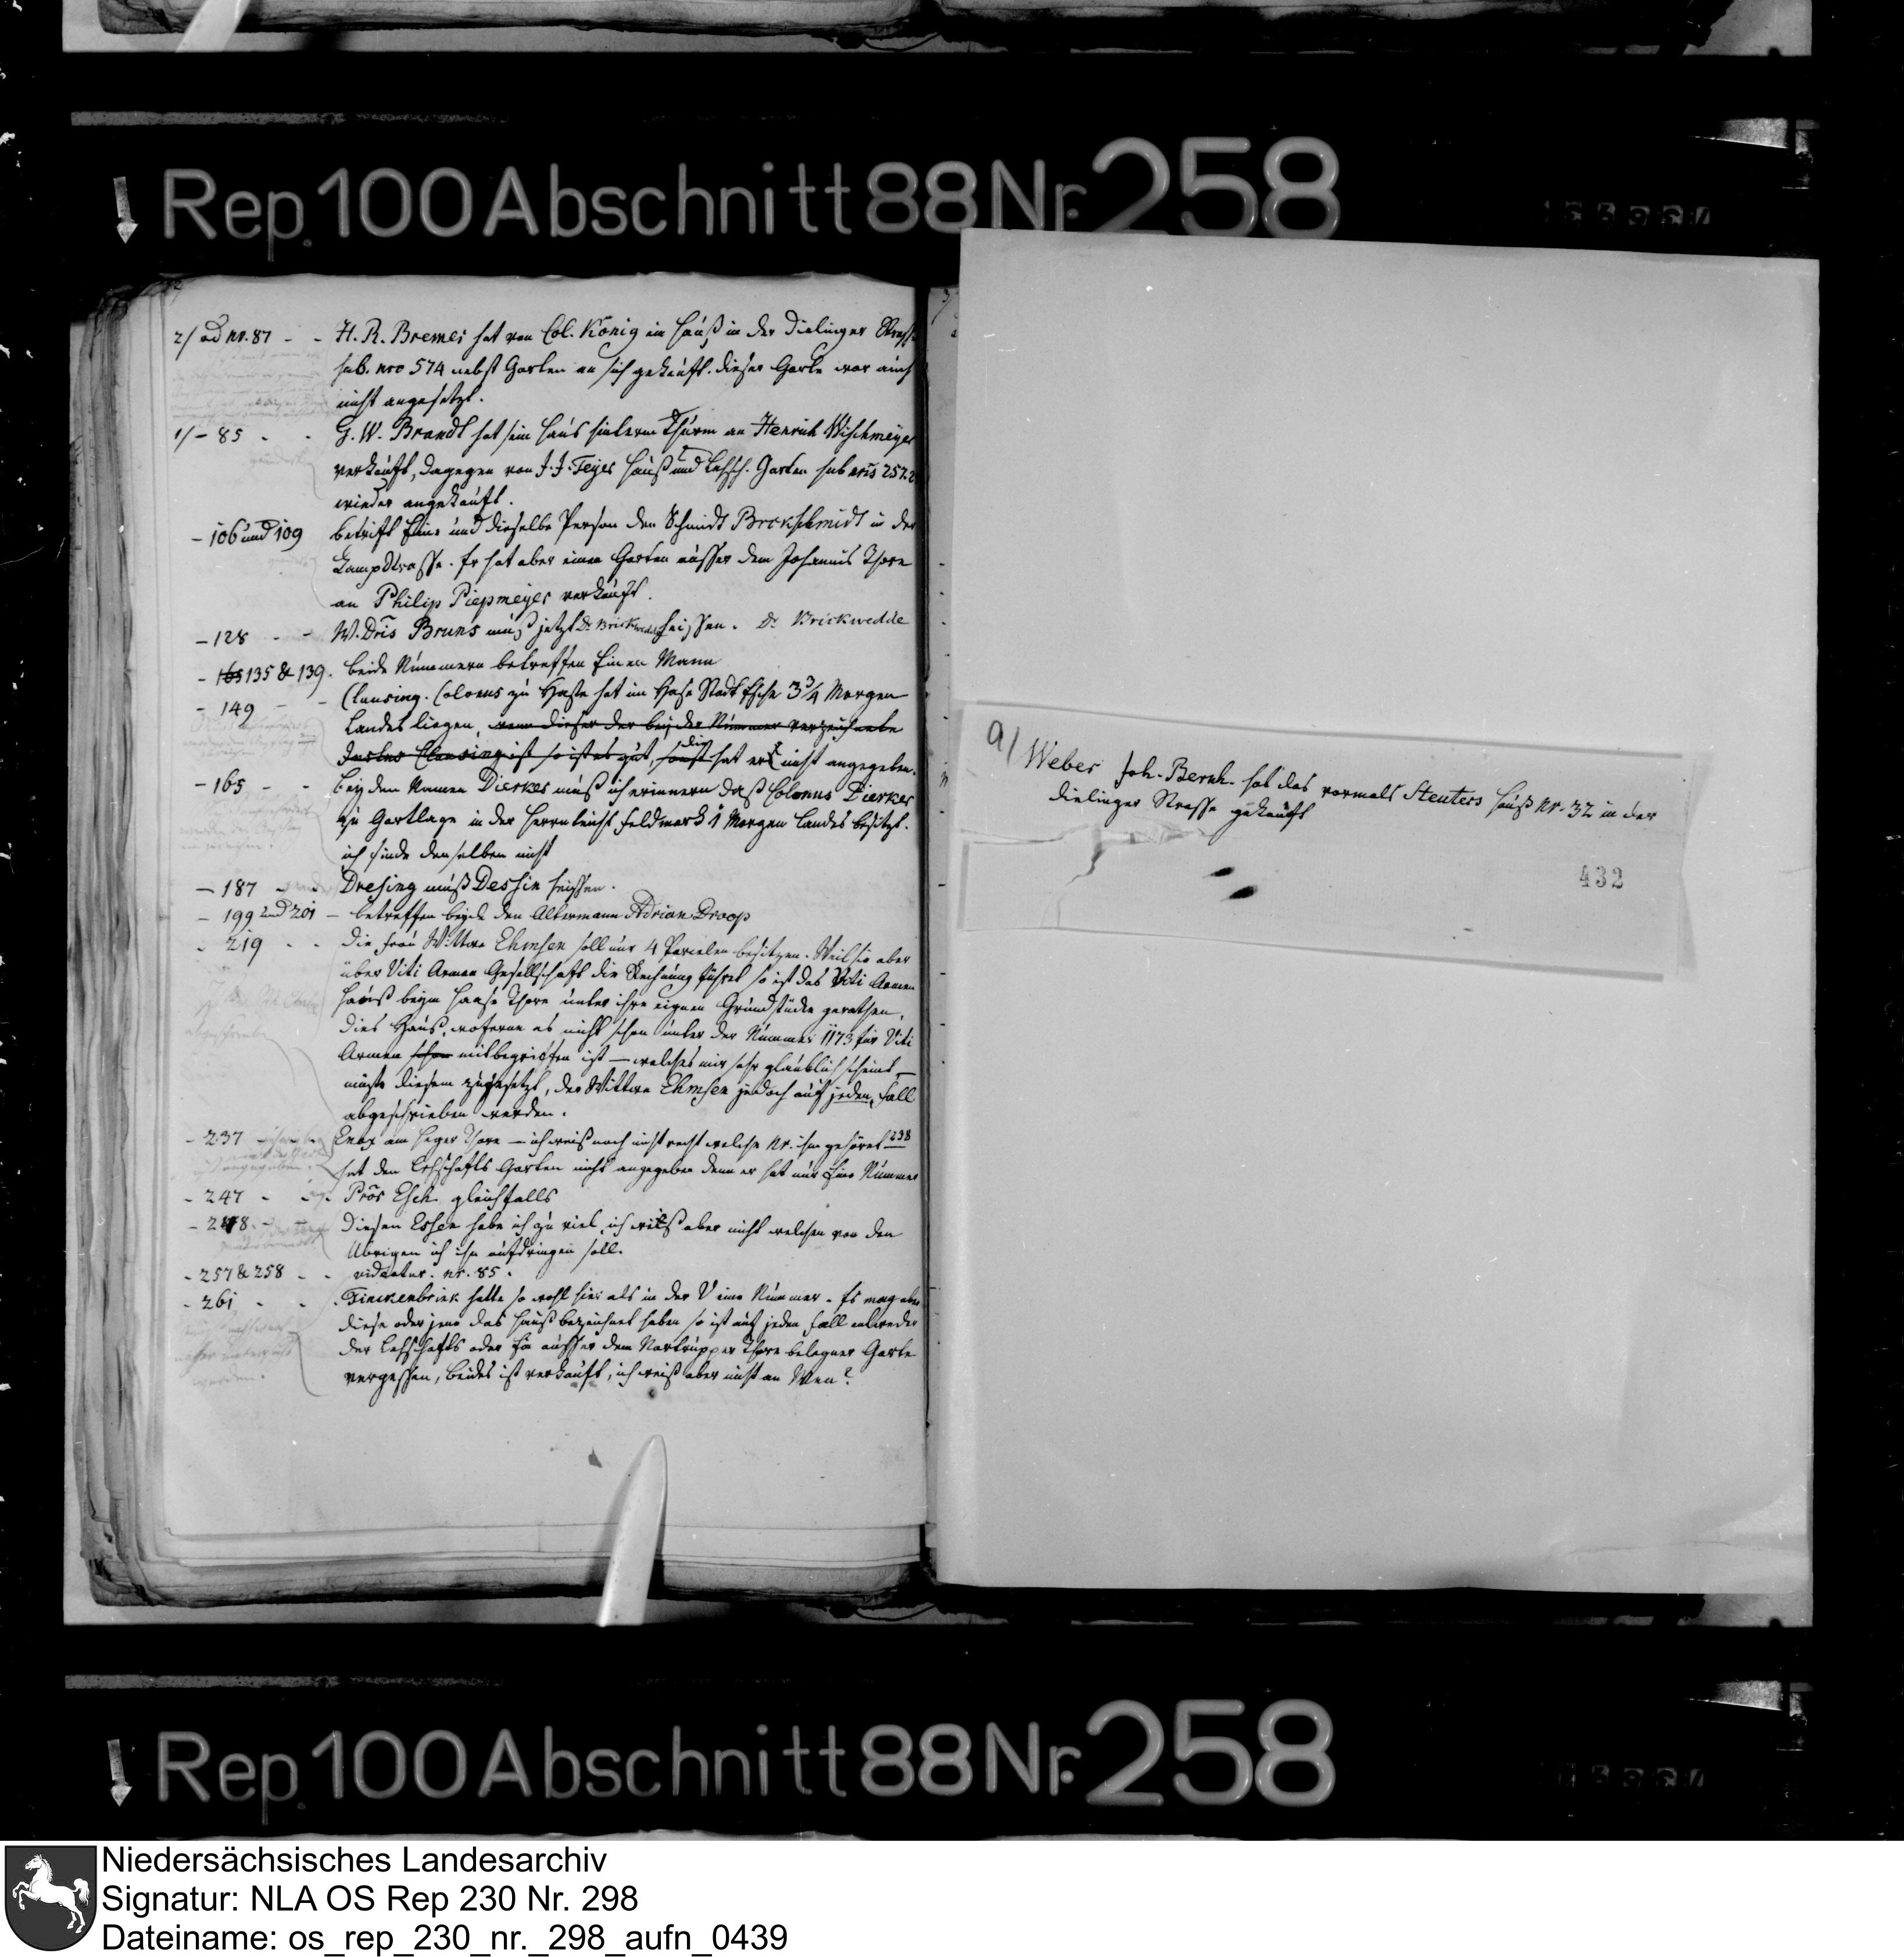 Rep. 100 Abschnitt 88 Nr. 258
2/ ad nr. 87 - - H. R. Bremer hat von Col. König ein Hauß in der Dielinger Strasse
sub. nro 574 nebst Garten an sich gekauft. dieser Garte war auch
nicht angesetzt.
1/ - 85 - - G. W. Brandt hat sein Haus hinterm Thurm an Henrich Wischmeyer
verkauft, dagegen von J. J. Feyer Hauß und Lehsch. Garten sub nris 257.2
wieder angekauft.
- 106 und 109 betrift Eine und dieselbe Person den Schmidt Brokschmidt in der
Kampstrasse. Er hat aber einen Garten ausser dem Johannis Thore
an Philip Piepmeyer verkauft.
- 128 - - W. Dris Bruns muß jetzt Dr Brickwedde heissen. Dr Brickwedde
- 165 135 & 139. beide Nummern betreffen Einen Mann
- 149 - - Clausing. Colonus zu Haste hat im Hase Stadt Esche 3 3/4 Morgen
Landes liegen, wenn dieser der bei der Nummer verzeichnete
Justus Clausing ist so ist es gut, sonst die hat er nicht angegeben.
- 165 - - bey dem Namen Dierkes muß ich erinnern daß Colonus Dierkes
zu Gartlage in der Herrnteichs Feldmark 1 Morgen Landes besitzt.
ich finde denselben nicht
- 187 - - Dresing muß Dessin heissen.
- 199 und 201 - betreffen beyde den Altermann Adrian Droop
- 219 - - die Frau Wittwe Ehmsen soll nur 4 Parcelen besitzen. Weil sie aber
über Viti Armen Gesellschaft die Rechnung führet so ist das Viti Armen
Hauß beym Haase Thore unter ihre eignen Grundstücke gerathen.
dies Haus, woferne es nicht schon unter der Nummer 1173 für Viti
Armen schon mitbegriffen ist - welches mir sehr glaublich scheint, -
müste diesem zugesetzt, der Wittwe Ehmsen jedoch auf jeden Fall
abgeschrieben werden.
- 237 am Heger Thore - ich weiß noch nicht recht welche Nr. ihm gehöret 238
hat den Lehschafts Garten nicht angegeben denn er hat nur Eine Nummer
- 247 - Prōs Esch gleichfalls
- 248 - - Diesen Essen habe ich zu viel, ich weiß aber nicht welchen von den
Übrigen ich ihn aufdringen soll.
- 257 & 258 - - videatur. nr. 85.
- 261 - - Finckenbrink hatte so wohl hier als in der V eine Nummer. Es mag aber
diese oder jene das Hauß bezeichnet haben so ist auf jeden Fall entweder
der Lehschafts oder Ein ausser dem Nortrupper Thore belegner Garte
vergessen, beides ist verkauft, ich weiß aber nicht an Wen?
a/ Weber Joh. Bernh. hat das vormals Steuters Hauß nr. 32 in der
Dielinger Strasse gekauft
432
Rep. 100 Abschnitt 88 Nr. 258
Niedersächsisches Landesarchiv
Signatur: NLA OS Rep 230 Nr. 298
Dateiname: os_rep_230_nr._298_aufn_0439